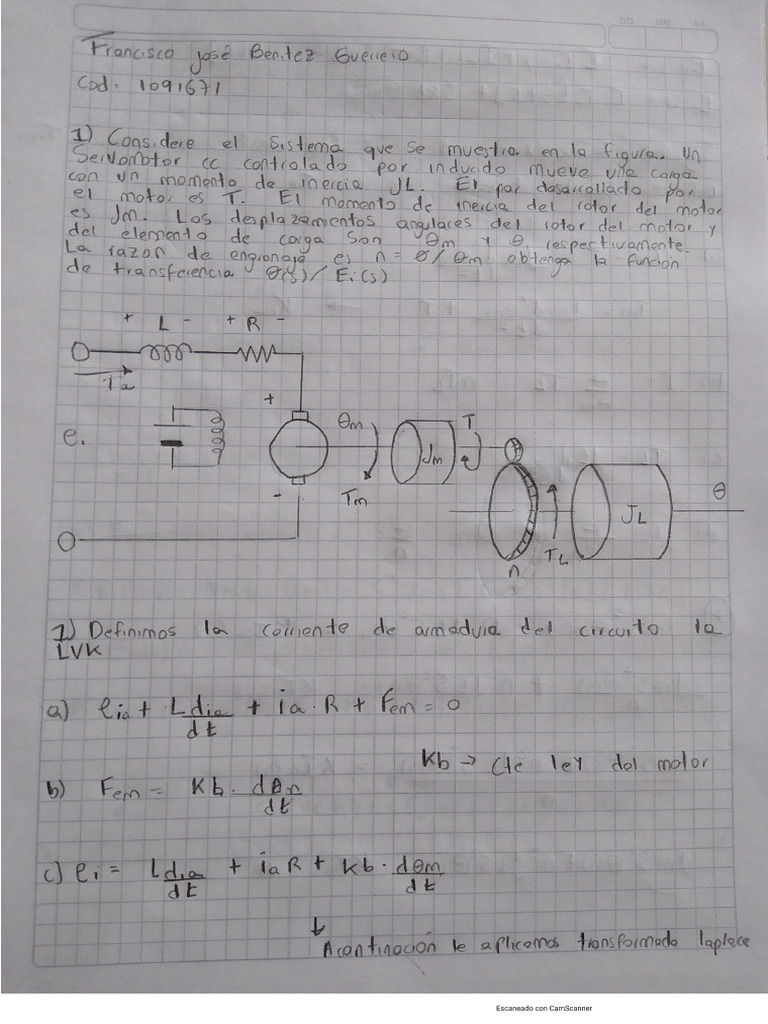 Francisco José Benitez Guerrero
Cod. 1091671
1) Considere el sistema que se muestra en la figura. Un
Servomotor cc controlado por inducido mueve una carga
con un momento de inercia JL. El par desarrollado por
el motor es T. El momento de inercia del rotor del motor
es Jm. Los desplazamientos angulares del rotor del motor y
del elemento de carga son θm y θ, respectivamente.
La razon de engranaje es n = θ/θm obtenga la función
de transferencia θ(s)/Ei(s)
+ L - + R -
Ia
+
e.
θm
Jm
T
Tm
-
θ
JL
TL
n
1) Definimos la corriente de armadura del circuito la
LVK
a) eia + L dia/dt + ia · R + Fem = 0
Kb → Cte ley del motor
b) Fem = Kb · dθn/dt
c) ei = L dia/dt + iaR + kb · dθm/dt
↓
Acontinación le aplicamos transformada laplece
Escaneado con CamScanner